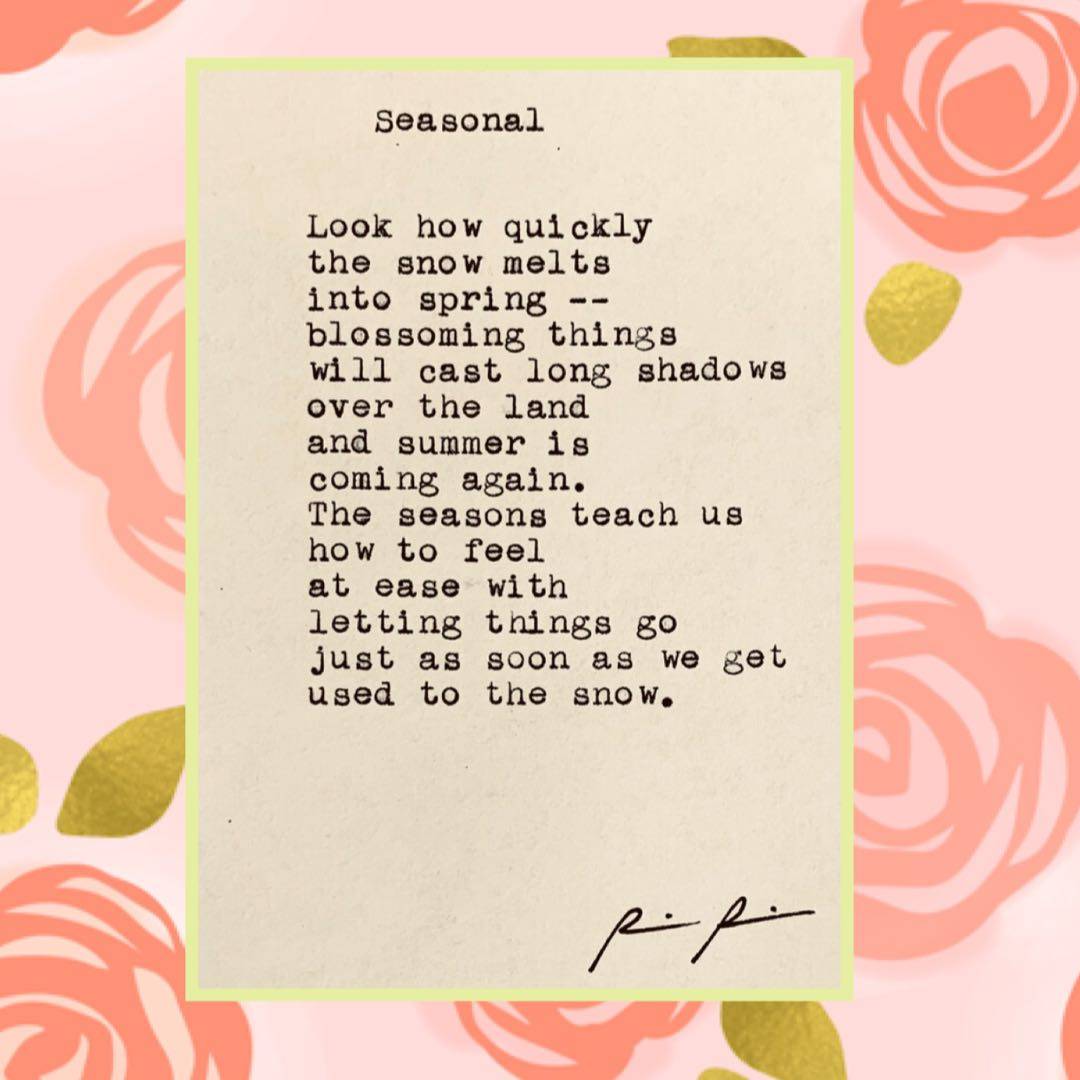 Seasonal
Look how quickly
the snow melts
into spring --
blossoming things
will cast long shadows
over the land
and summer is
coming again.
The seasons teach us
how to feel
at ease with
letting things go
just as soon as we get
used to the snow.